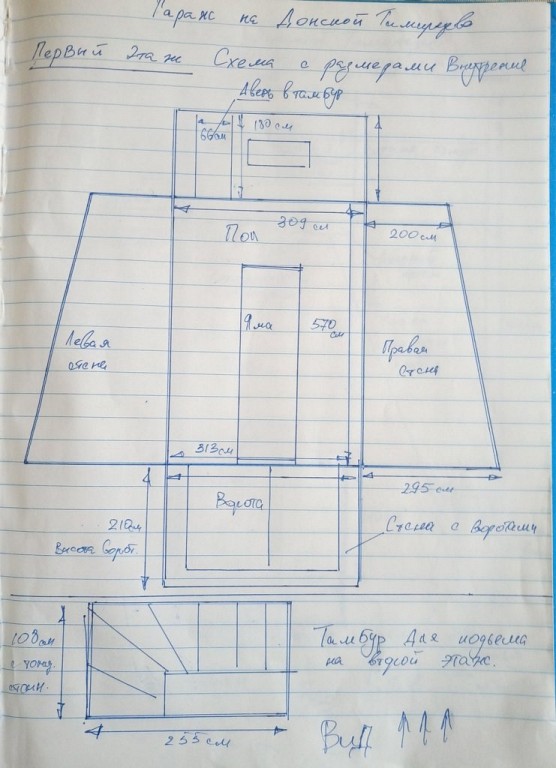 Гараж на Донской Тимирязева
Первый Этаж Схема с размерами Внутрение
Дверь в тамбур
66см
180 см
309 см
200 см
Пол
Яма
570
см
Левая
стена
Правая
Стена
313 см
295 см
Ворота
210см
Высота Ворот.
Стена с Воротами
108 см
Тамбур Для подъема
на второй этаж.
255 см
Вид